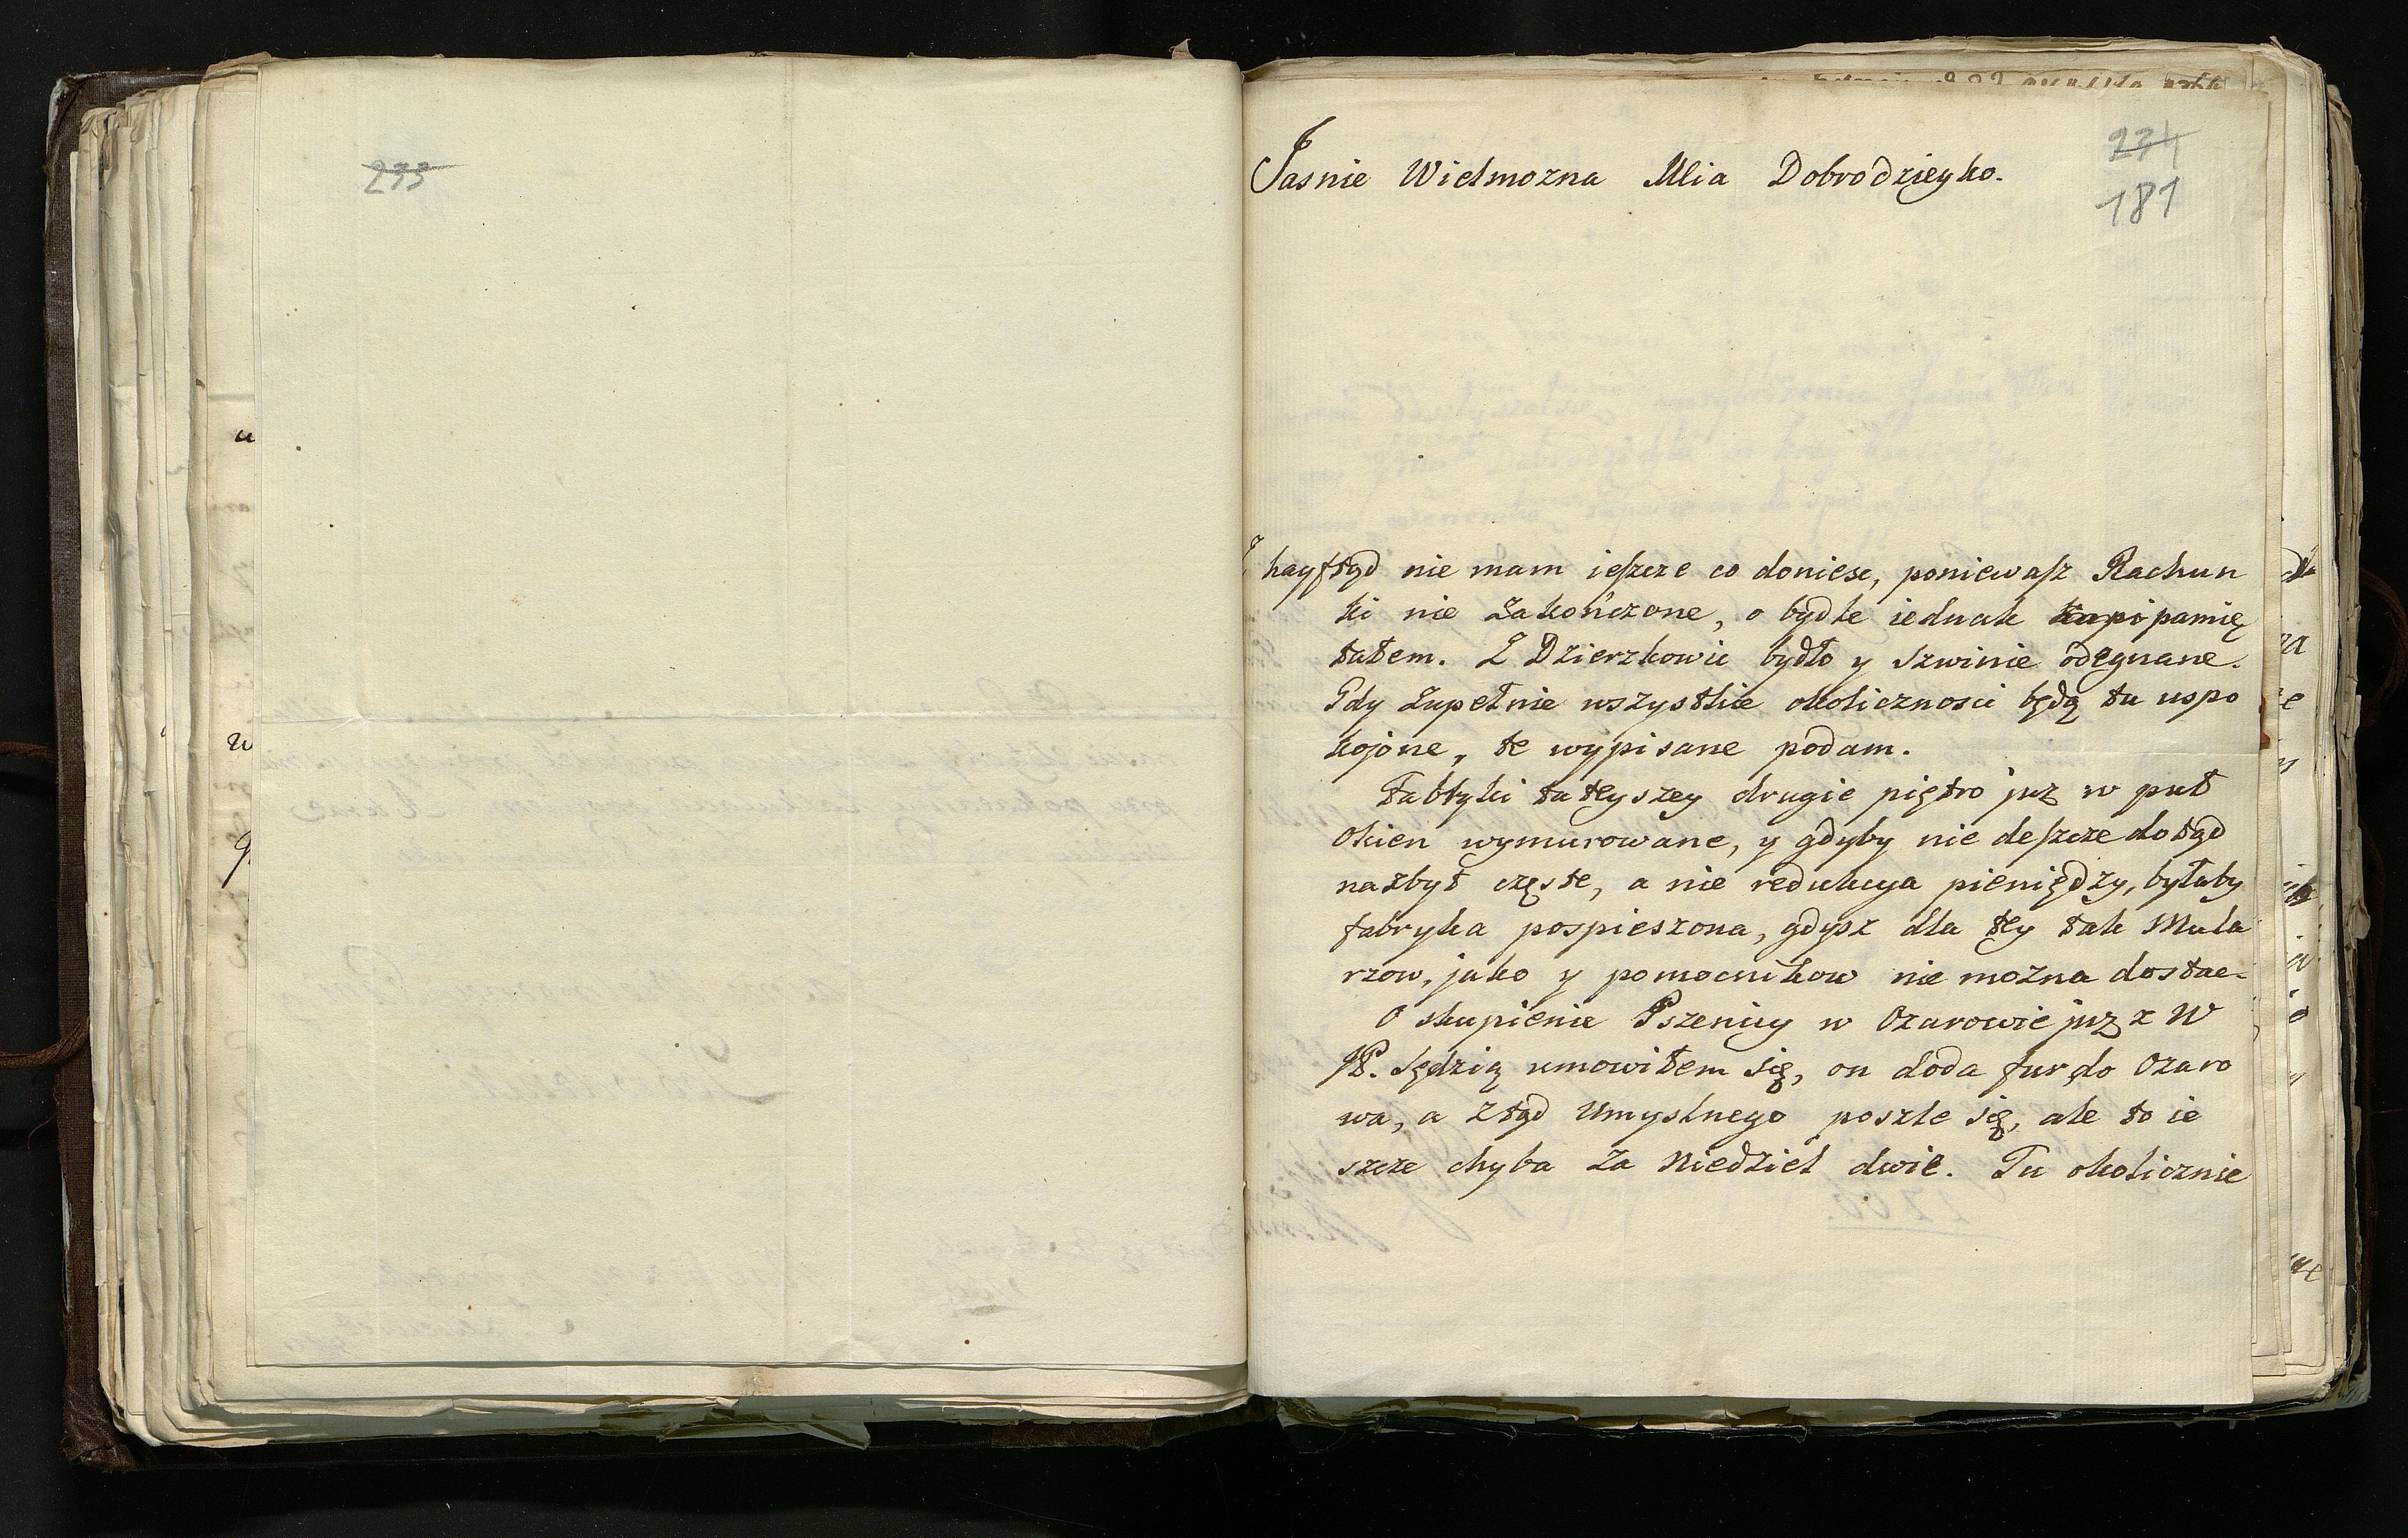 233
Jasnie Wielmozna Mia Dobrodzieyko.
234
181
nie mam ieszcze co doniesc, poniewasz Rachun
ki nie Zakończone, o bydle iednak kupi pamię
tałem. Z Dzierzkowic bydło y szwinie odegnane.
Gdy Zupełnie wszystkie okolicznosci będą tu uspo
kojone, te wypisane podam.
Fabryki tuteyszey drugie piętro juz w puł
Okien wymurowane, y gdyby nie deszcze dotąd
nazbyt częste, a nie redukcya pieniędzy, byłaby
fabryka pospieszona, gdysz dla tey tak Mula
rzow, jako y pomocnikow nie mozna dostac.
O skupienie Pszenicy w Ozarowie juz z W
JP. Sędzią umowiłem się, on doda fur do Ozaro
wa, a ztąd Umyslnego poszle się, ale to ie
szcze chyba Za Niedziel dwie. Tu okolicznie